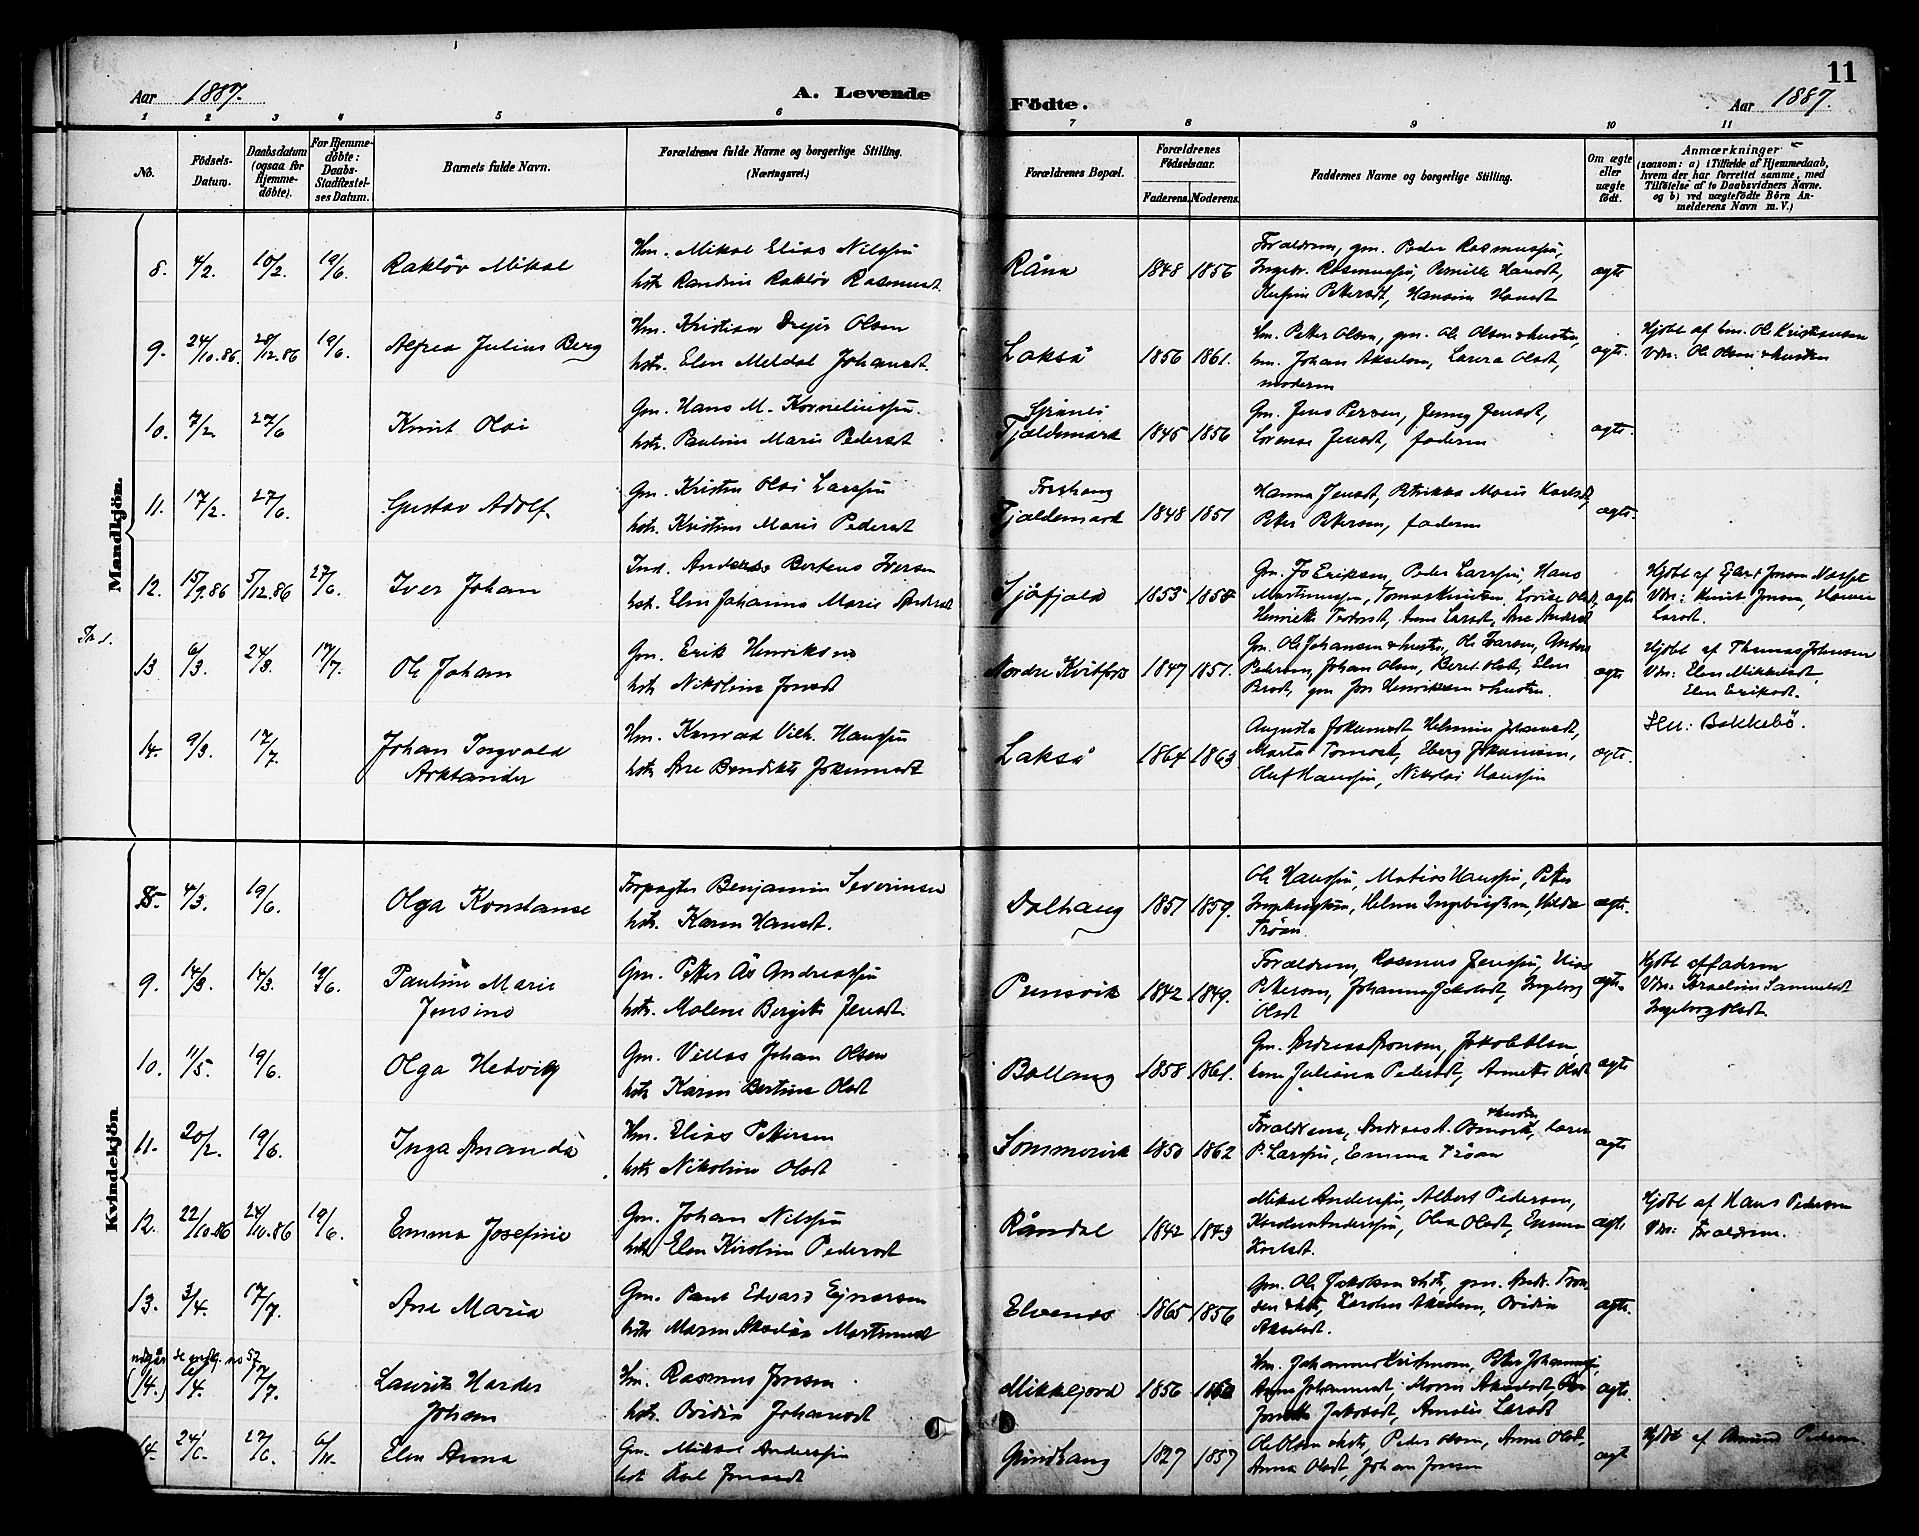 11
Aar 1887. A. Levende Födte. Aar 1887.
1 2 3 4 5 6 7 8 9 10 11
No.
Födsels-Datum.
Daabsdatum (ogsaa for Hjemme-döbte).
For Hjemme-döbte: Daabs-Stadfæstel-ses Datum.
Barnets fulde Navn.
Forældrenes fulde Navne og borgerlige Stilling.
(Næringsvei.)
Forældrenes Bopæl.
Forældrenes Födselsaar.
Faderens. Moderens.
Faddernes Navne og borgerlige Stilling.
Om ægte eller uægte födt.
Anmærkninger
(saasom: a) i Tilfælde af Hjemmedaab,
hvem der har forrettet samme, med
Tilföielse af to Daabsvidners Navne.
og b) ved uægtefödte Börn An-
melderens Navn m. V.)
Mandkjön.
8. 4/2. 10/2. 19/6. Rakløv Mikal
Hm. Mikal Elias Nilssøn
hstr. Randine Rakløv Rasmusdt.
Råna 1848 1856
Forældrene, gm. Peder Rasmussøn,
Ingebr. Rasmussøn, Pernille Hansdt,
Petersdt, Hansine Hansdt
ægte
9. 24/10.86 28/12.86 19/6. Alfred Julius Berg
Hm. Kristian Drejer Olsen
hstr. Elen Meldal Johansdt.
Lakså 1856 1861.
hm. Petter Olsen, gm. Ole Olsen & hustru,
hm. Johan Akselsen, Laura Olsdt,
moderen
ægte.
Hjdbt af hm. Ole Kristiansen
Vdn: Ole Olsen & hustru
10. 7/2. 27/6 Knut Olai
Gm. Hans M. Korneliussøn.
hstr. Pauline Marie Pedersdt
Tjældemark 1845 1856
Gm. Jens Persen, Jenny Jensdt,
Lorense Jensdt, faderen
ægte.
11. 17/2. 27/6. Gustav Adolf.
Gm. Kristen Olai Larssøn
hstr. Kristine Marie Pedersdt
Forshaug
Tjældemark 1848 1851
Hanna Jensdt, Petrikka Marie Karlsdt,
Peter Petersen, faderen
ægte.
12. 15/9.86 5/12.86 27/6. Iver Johan
Ind. Anders Berteus Iversen
hst. Elen Johanna Marie Andersdt
Sjåfjæld 1853 1858
Gm. Jo Eriksen, Peder Larssøn, Hans
Martinussen, Tomas Knutsen, Lovise Olsdt,
Henrikke Todorsdt, Anne Larsdt, Ane Andersdt
ægte
Vdn: Knut Jonsen,
Larsdt.
Ind.
13 6/3. 24/3. 17/7. Ole Johan
Gm. Erik Henriksen
hstr Nikoline Jonsdt
Nordre Kvitfors 1847 1851.
Gm. Ole Johansen & hustru, Ole Larsen, Anders
Pedersen, Johan Olsen, Beret Olsdt, Elen
gm Jon Henriksen & hustru.
ægte
Hjdbt af Thomas Johnsen
Vdn: Elen Mikkelsdt,
Elen Eriksdt.
14. 9/3. 17/7. Johan Ingvald
Arktander
Hm. Konrad Vilh. Hanssøn
hstr Ane Bendikte Jokumsdt
Lakså 1864 1863
Augusta Jokumsdt, Helmine Johansdt,
Marta Tomasdt, Eberg Jokumsen,
Oluf Hanssøn, Nikolai Hanssøn
ægte.
Bakkebö.
Kvindekjön.
8. 4/3. 19/6. Olga Konstanse
Forpagter Benjamin Severinsen
hstr. Karen Hansdt.
Dalhaug 1851 1859.
Ole Hanssøn, Matias Hanssøn, Petter
Ingebrigtsen, Helma Ingebrigtsen, Hilda
Tröan.
ægte.
9. 14/3. 14/3. 19/6. Pauline Marie
Jensine
Gm. Petter Ås Andreassøn
hstr. Malene Bergitte Jensdt.
Prensvik 1842 1849.
Forældrene, Rasmus Jenssøn, Nias
Petersen, Johanna Jakobsdt, Ingeborg
Olsdt
ægte.
Hjdbt af faderen
Vdn: Israeline Samuelsdt
Ingeborg Olsdt
10. 11/5. 19/6. Olga Hedvig
Gm. Villas Johan Olsen
hstr. Karen Bertine Olsdt
Ballang 1858 1861.
Gm. Andreas Aronsen, Jakob Olsen
hm Juliana Pedersdt, Anette Olsdt
ægte
11. 20/2. 19/6. Inga Amanda
Hm. Elias Pettersen
hstr Nikoline Olsdt
Sommervik 1850 1862
Forældrene, Andreas A. & hustru, Lars
P. Larssøn, Emma Tröan
ægte
12. 22/10.86 24/10.86 19/6. Emma Josefine
Gm. Johan Nilssøn
hstr Elen Kirstine Pedersdt
Råndal 1842 1843
Mikal Anderssøn, Albert Pedersen,
Anderssøn, Olea Olsdt, Emma
Karlsdt.
ægte
Hjdbt af Hans Pedersen
Vdn: Forældrene.
13. 3/4. 17/7. Ane Maria
Gm. Paul Edvard Ejnarsen
hstr Maren Akedia Martinusdt
Elvenes 1865 1856
Gm. Ole Jakobsen & hst, gm. Andr. Tron-
sen & hst, Karoline Akselsen, Ovidia
Akselsdt.
ægte.
no 57
(14.) 17/7. Laurits Harder
Johan
Hm. Rasmus Jonsen
hstr. Ovidia Johansdt
Mikkejord 1856 1860
Hm. Johannes Kristensen, Peter Johannessøn,
Anne Johannesdt, Maren Akselsdt,
Jakobsdt, Amalie Larsdt
ægte.
14. 24/6. 27/6. 6/11. Elen Anna
Gm. Mikal Anderssøn
hst. Jonsdt
Grindhaug 1827 1857
Ole Olsen & hst, Peder Olsen, Anne Olsdt,
Anna Olsdt, Johan Jonsen
ægt
Hjdbt af Amund Pedersen